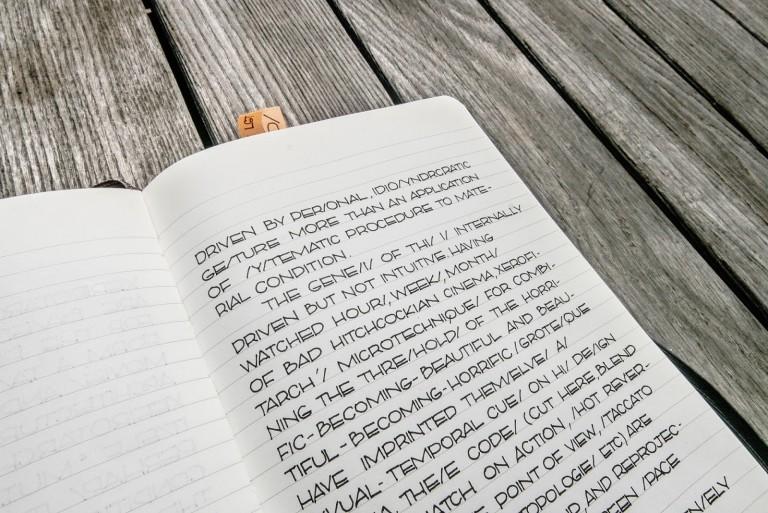 DRIVEN BY PER/ONAL, IDIO/YNDRCRATIC
GE/TURE MORE THAN AN APPLICATION
OF /Y/TEMATIC PROCEDURE TO MATE-
RIAL CONDITION.
THE GENE/I/ OF THI/ I/ INTERNALLY
DRIVEN BUT NOT INTUITIVE. HAVING
WATCHED HOUR/, WEEK/, MONTH/
OF BAD HITCHCOCKIAN CINEMA, XEROFI-
TARCH'/ MICROTECHNIQUE/ FOR COMBI-
NING THE THRE/HOLD/ OF THE HORRI-
FIC-BECOMING-BEAUTIFUL AND BEAU-
TIFUL-BECOMING-HORRIFIC/GROTE/QUE
HAVE IMPRINTED THEM/ELVE/ A/
I/UAL-TEMPORAL CUE/ ON HI/ DE/IGN
THE/E CODE/ (CUT HERE, BLEND
ATCH ON ACTION, /HOT REVER-
POINT OF VIEW, /TACCATO
TOPOLOGIE/, ETC) ARE
AND REPROJEC-
EEN /PACE
/ELY